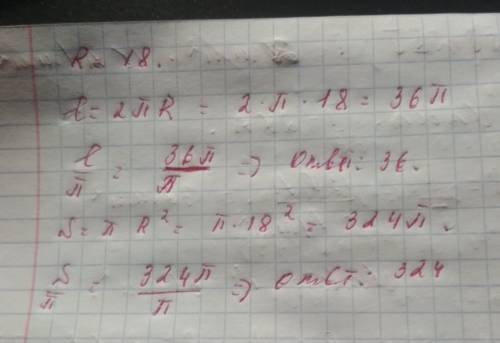 R = 18.
ℓ = 2πR = 2·π·18 = 36π
ℓ/π = 36π/π => ответ: 36.
S = πR² = π·18² = 324π.
S/π = 324π/π => ответ: 324